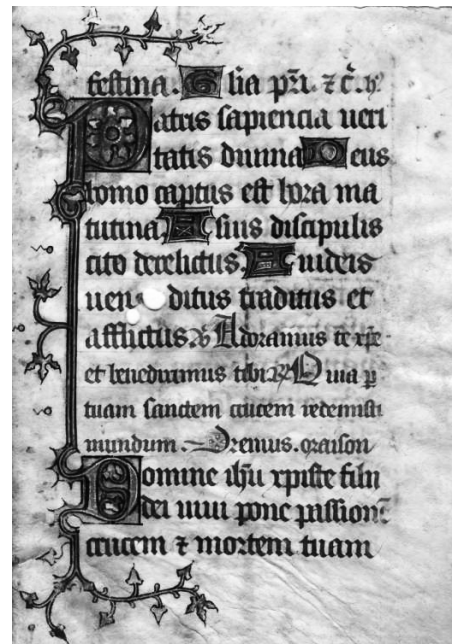 festina. Glia pri. z c̃.
Patris sapiencia ueri
tatis diuina Deus
homo captus est hora ma
tutina A suis discipulis
cito derelictus. A iudeis
uen ditus traditus et
afflictus Adoramus te xpe
et benedicimus tibi Quia p
tuam sanctem crucem redemisti
mundum. Oremus. oraison
Domine ihu xpiste filii
dei uiui pone passionē
crucem z mortem tuam